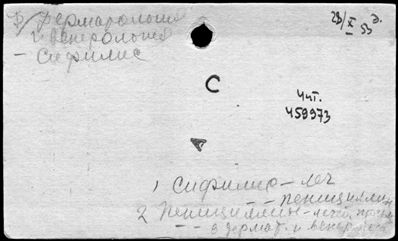 дерматология
и венерология
– сифилис
23/X 53 г.
С
Чит.
459973
1 Сифилис – леч
пенициллин
2 Пенициллин – леч.
в дермат. и венерол